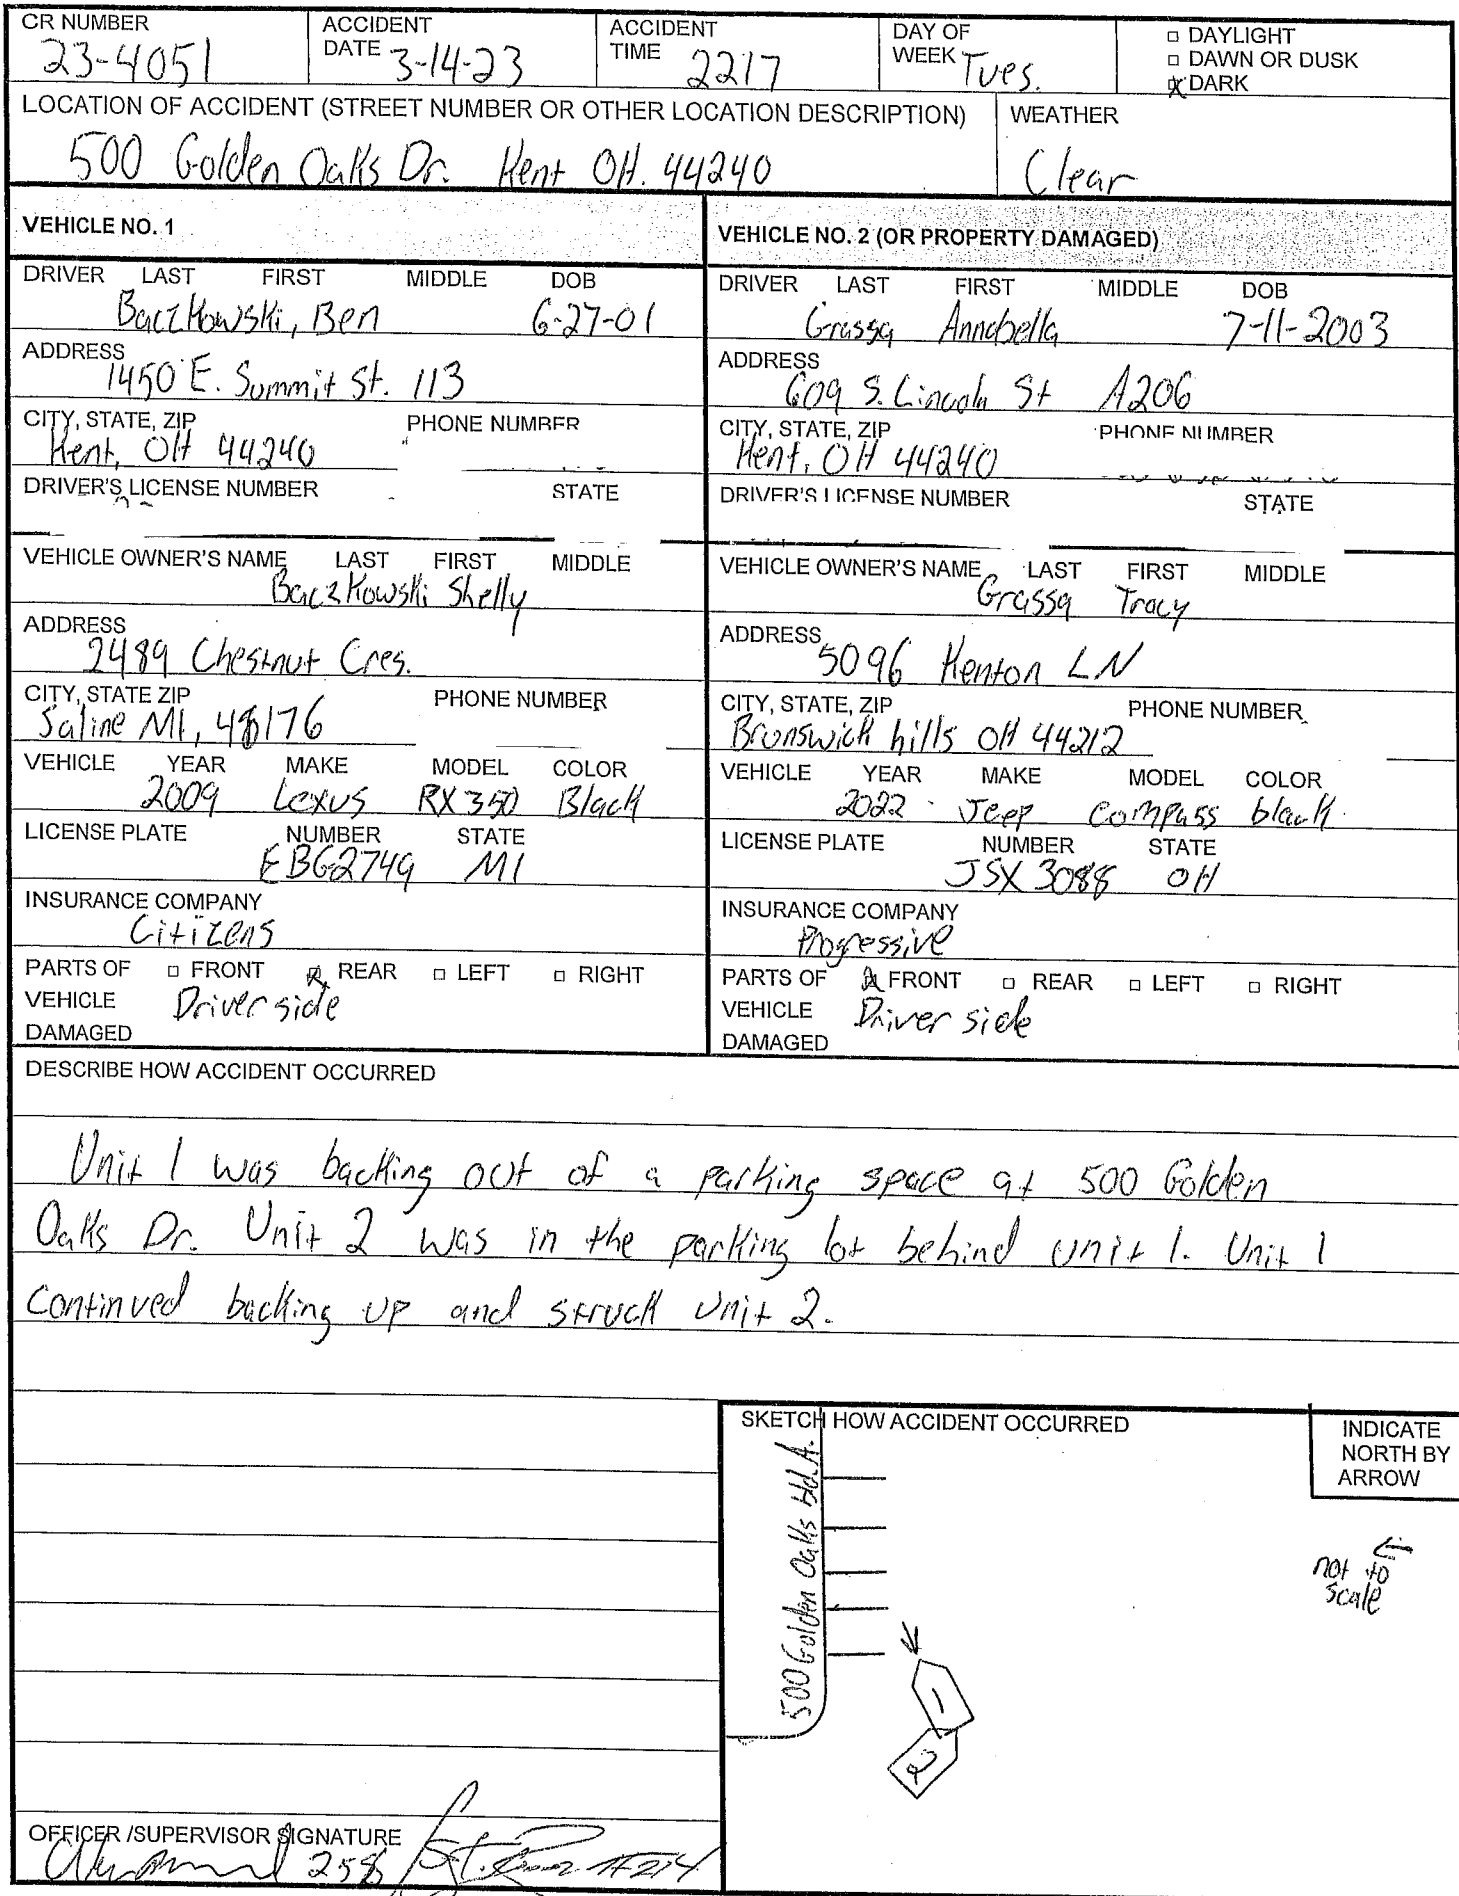 CR NUMBER ACCIDENT ACCIDENT DAY OF □ DAYLIGHT
23-4051 DATE 3-14-23 TIME 2217 WEEK Tues. □ DAWN OR DUSK
☒ DARK
LOCATION OF ACCIDENT (STREET NUMBER OR OTHER LOCATION DESCRIPTION) WEATHER
500 Golden Oaks Dr. Kent OH. 44240 Clear
VEHICLE NO. 1 VEHICLE NO. 2 (OR PROPERTY DAMAGED)
DRIVER LAST FIRST MIDDLE DOB
Baczkowski, Ben 6-27-01
ADDRESS
1450 E. Summit St. 113
CITY, STATE, ZIP PHONE NUMBER
Kent, OH 44240
DRIVER'S LICENSE NUMBER STATE
VEHICLE OWNER'S NAME LAST FIRST MIDDLE
Baczkowski Shelly
ADDRESS
2489 Chestnut Cres.
CITY, STATE ZIP PHONE NUMBER
Saline MI, 48176
VEHICLE YEAR MAKE MODEL COLOR
2009 Lexus RX350 Black
LICENSE PLATE NUMBER STATE
EBG2749 MI
INSURANCE COMPANY
Citizens
PARTS OF □ FRONT ☒ REAR □ LEFT □ RIGHT
VEHICLE Driver side
DAMAGED
DRIVER LAST FIRST MIDDLE DOB
Grassa Annabella 7-11-2003
ADDRESS
609 S. Lincoln St A206
CITY, STATE, ZIP PHONE NUMBER
Kent, OH 44240
DRIVER'S LICENSE NUMBER STATE
VEHICLE OWNER'S NAME LAST FIRST MIDDLE
Grassa Tracy
ADDRESS
5096 Kenton LN
CITY, STATE, ZIP PHONE NUMBER
Brunswick hills OH 44212
VEHICLE YEAR MAKE MODEL COLOR
2022 Jeep Compass black
LICENSE PLATE NUMBER STATE
JSX 3088 OH
INSURANCE COMPANY
Progressive
PARTS OF ☒ FRONT □ REAR □ LEFT □ RIGHT
VEHICLE Driver side
DAMAGED
DESCRIBE HOW ACCIDENT OCCURRED
Unit 1 was backing out of a parking space at 500 Golden
Oaks Dr. Unit 2 was in the parking lot behind unit 1. Unit 1
Continued backing up and struck unit 2.
SKETCH HOW ACCIDENT OCCURRED
INDICATE
NORTH BY
ARROW
500 Golden Oaks bld. A.
not to
scale
1
2
OFFICER /SUPERVISOR SIGNATURE
258 #214